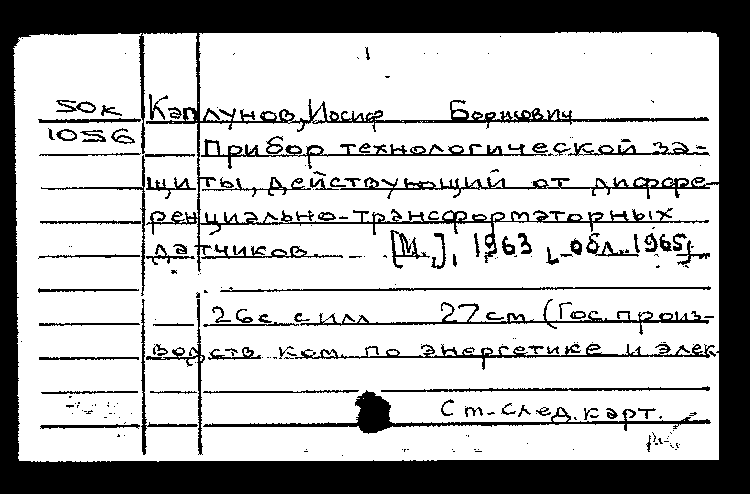 50к Каплунов, Иосиф Борисович
1056 Прибор технологической за-
щиты, действующий от диффе-
ренциально-трансформаторных
датчиков. [М.], 1963 [обл. 1965]
26 с. с илл. 27 см (Гос. произ-
водств. ком. по энергетике и элек-
См. след. карт.